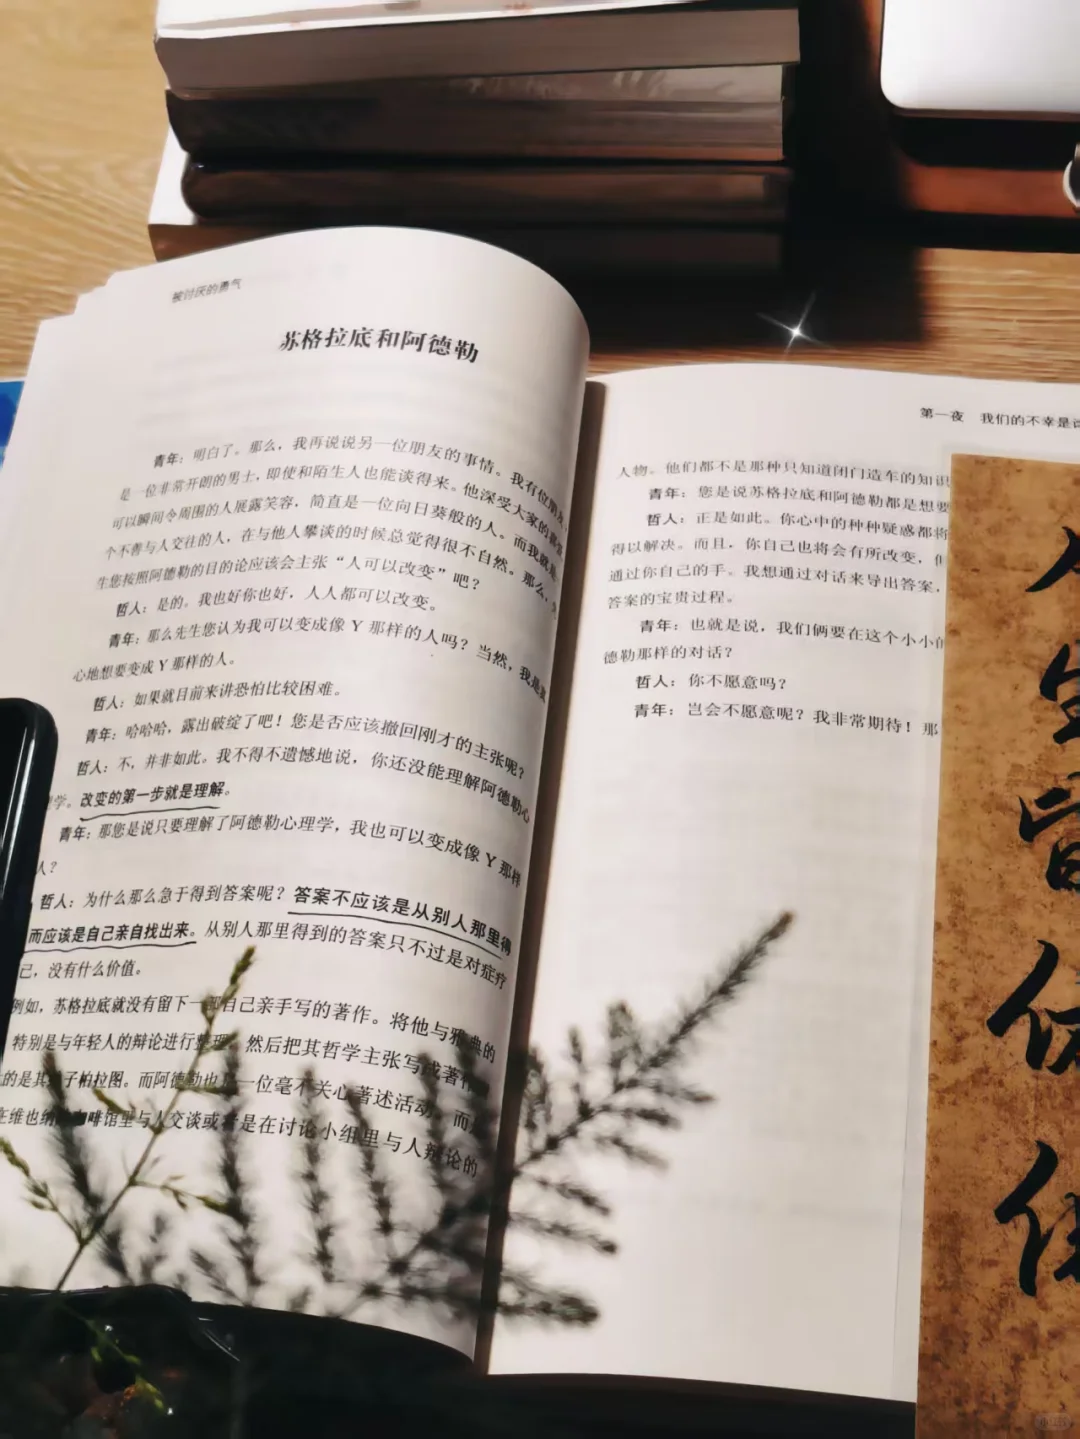 被讨厌的勇气
苏格拉底和阿德勒
青年：明白了。那么，我再说说另一位朋友的事情。我有位朋友
是一位非常开朗的男士，即使和陌生人也能谈得来。他深受大家的
可以瞬间令周围的人展露笑容，简直是一位向日葵般的人。而我就是
个不善与人交往的人，在与他人攀谈的时候总觉得很不自然。那么，
生您按照阿德勒的目的论应该会主张“人可以改变”吧？
哲人：是的。我也好你也好，人人都可以改变。
青年：那么先生您认为我可以变成像 Y 那样的人吗？当然，我是
心地想要变成 Y 那样的人。
哲人：如果就目前来讲恐怕比较困难。
青年：哈哈哈，露出破绽了吧！您是否应该撤回刚才的主张呢？
哲人：不，并非如此。我不得不遗憾地说，你还没能理解阿德勒心
学。改变的第一步就是理解。
青年：那您是说只要理解了阿德勒心理学，我也可以变成像 Y 那样
人？
哲人：为什么那么急于得到答案呢？答案不应该是从别人那里得
而应该是自己亲自找出来。从别人那里得到的答案只不过是对症疗
已，没有什么价值。
例如，苏格拉底就没有留下一部自己亲手写的著作。将他与雅典的
特别是与年轻人的辩论进行整理，然后把其哲学主张写成著作
的是其弟子柏拉图。而阿德勒也是一位毫不关心著述活动，而
在维也纳的咖啡馆里与人交谈或者是在讨论小组里与人辩论的
第一夜 我们的不幸是
人物。他们都不是那种只知道闭门造车的知识
青年：您是说苏格拉底和阿德勒都是想要
哲人：正是如此。你心中的种种疑惑都将
得以解决。而且，你自己也将会有所改变，但
通过你自己的手。我想通过对话来导出答案，
答案的宝贵过程。
青年：也就是说，我们俩要在这个小小的
德勒那样的对话？
哲人：你不愿意吗？
青年：岂会不愿意呢？我非常期待！那